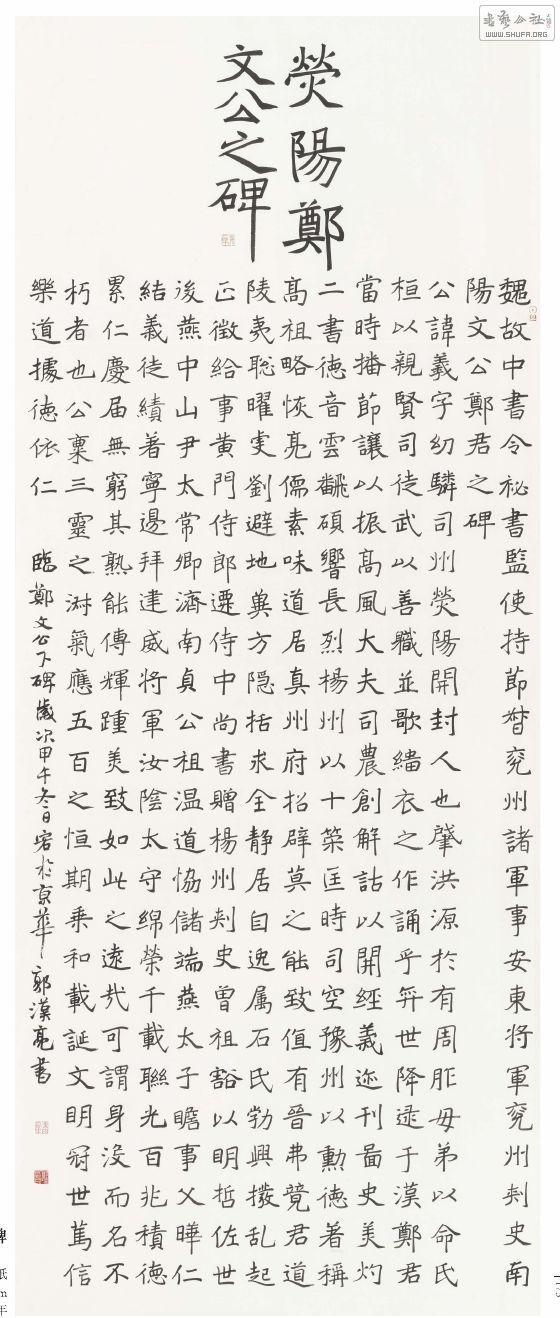 書藝公社
WWW.SHUFA.ORG
熒陽鄭
文公之碑
魏故中書令祕書監使持節督兗州諸軍事安東將軍兗州刾史南
陽文公鄭君之碑
公諱義字幼驎司州熒陽開封人也肇洪源於有周胙母弟以命氏
桓以親賢司徒武以善職並歌緇衣之作誦乎奕世降逮于漢鄭君
當時播節讓以振髙風大夫司農創解詁以開經義迹刊圖史美灼
二書德音雲翻碩響長烈楊州以十策匡時司空豫州以勳德著稱
髙祖略恢亮儒素味道居真州府招辟莫之能致值有晉弗竟君道
陵夷聡曜虔劉避地兾方隐括求全静居自逸属石氏勃興撥乱起
正徵給事黄門侍郎遷侍中尚書贈楊州刾史曽祖豁以明哲佐世
後燕中山尹太常卿濟南貞公祖温道恊儲端燕太子瞻事父曄仁
結義徒績著寧邊拜建威將軍汝陰太守綿榮千載聯光百兆積德
累仁慶届無窮其熟能傳輝踵美致如此之遠哉可謂身没而名不
朽者也公稟三靈之淋氣應五百之恒期乗和載誕文明冠世篤信
樂道據德依仁
臨鄭文公下碑歲次甲午冬日客於京華郭漢亮書